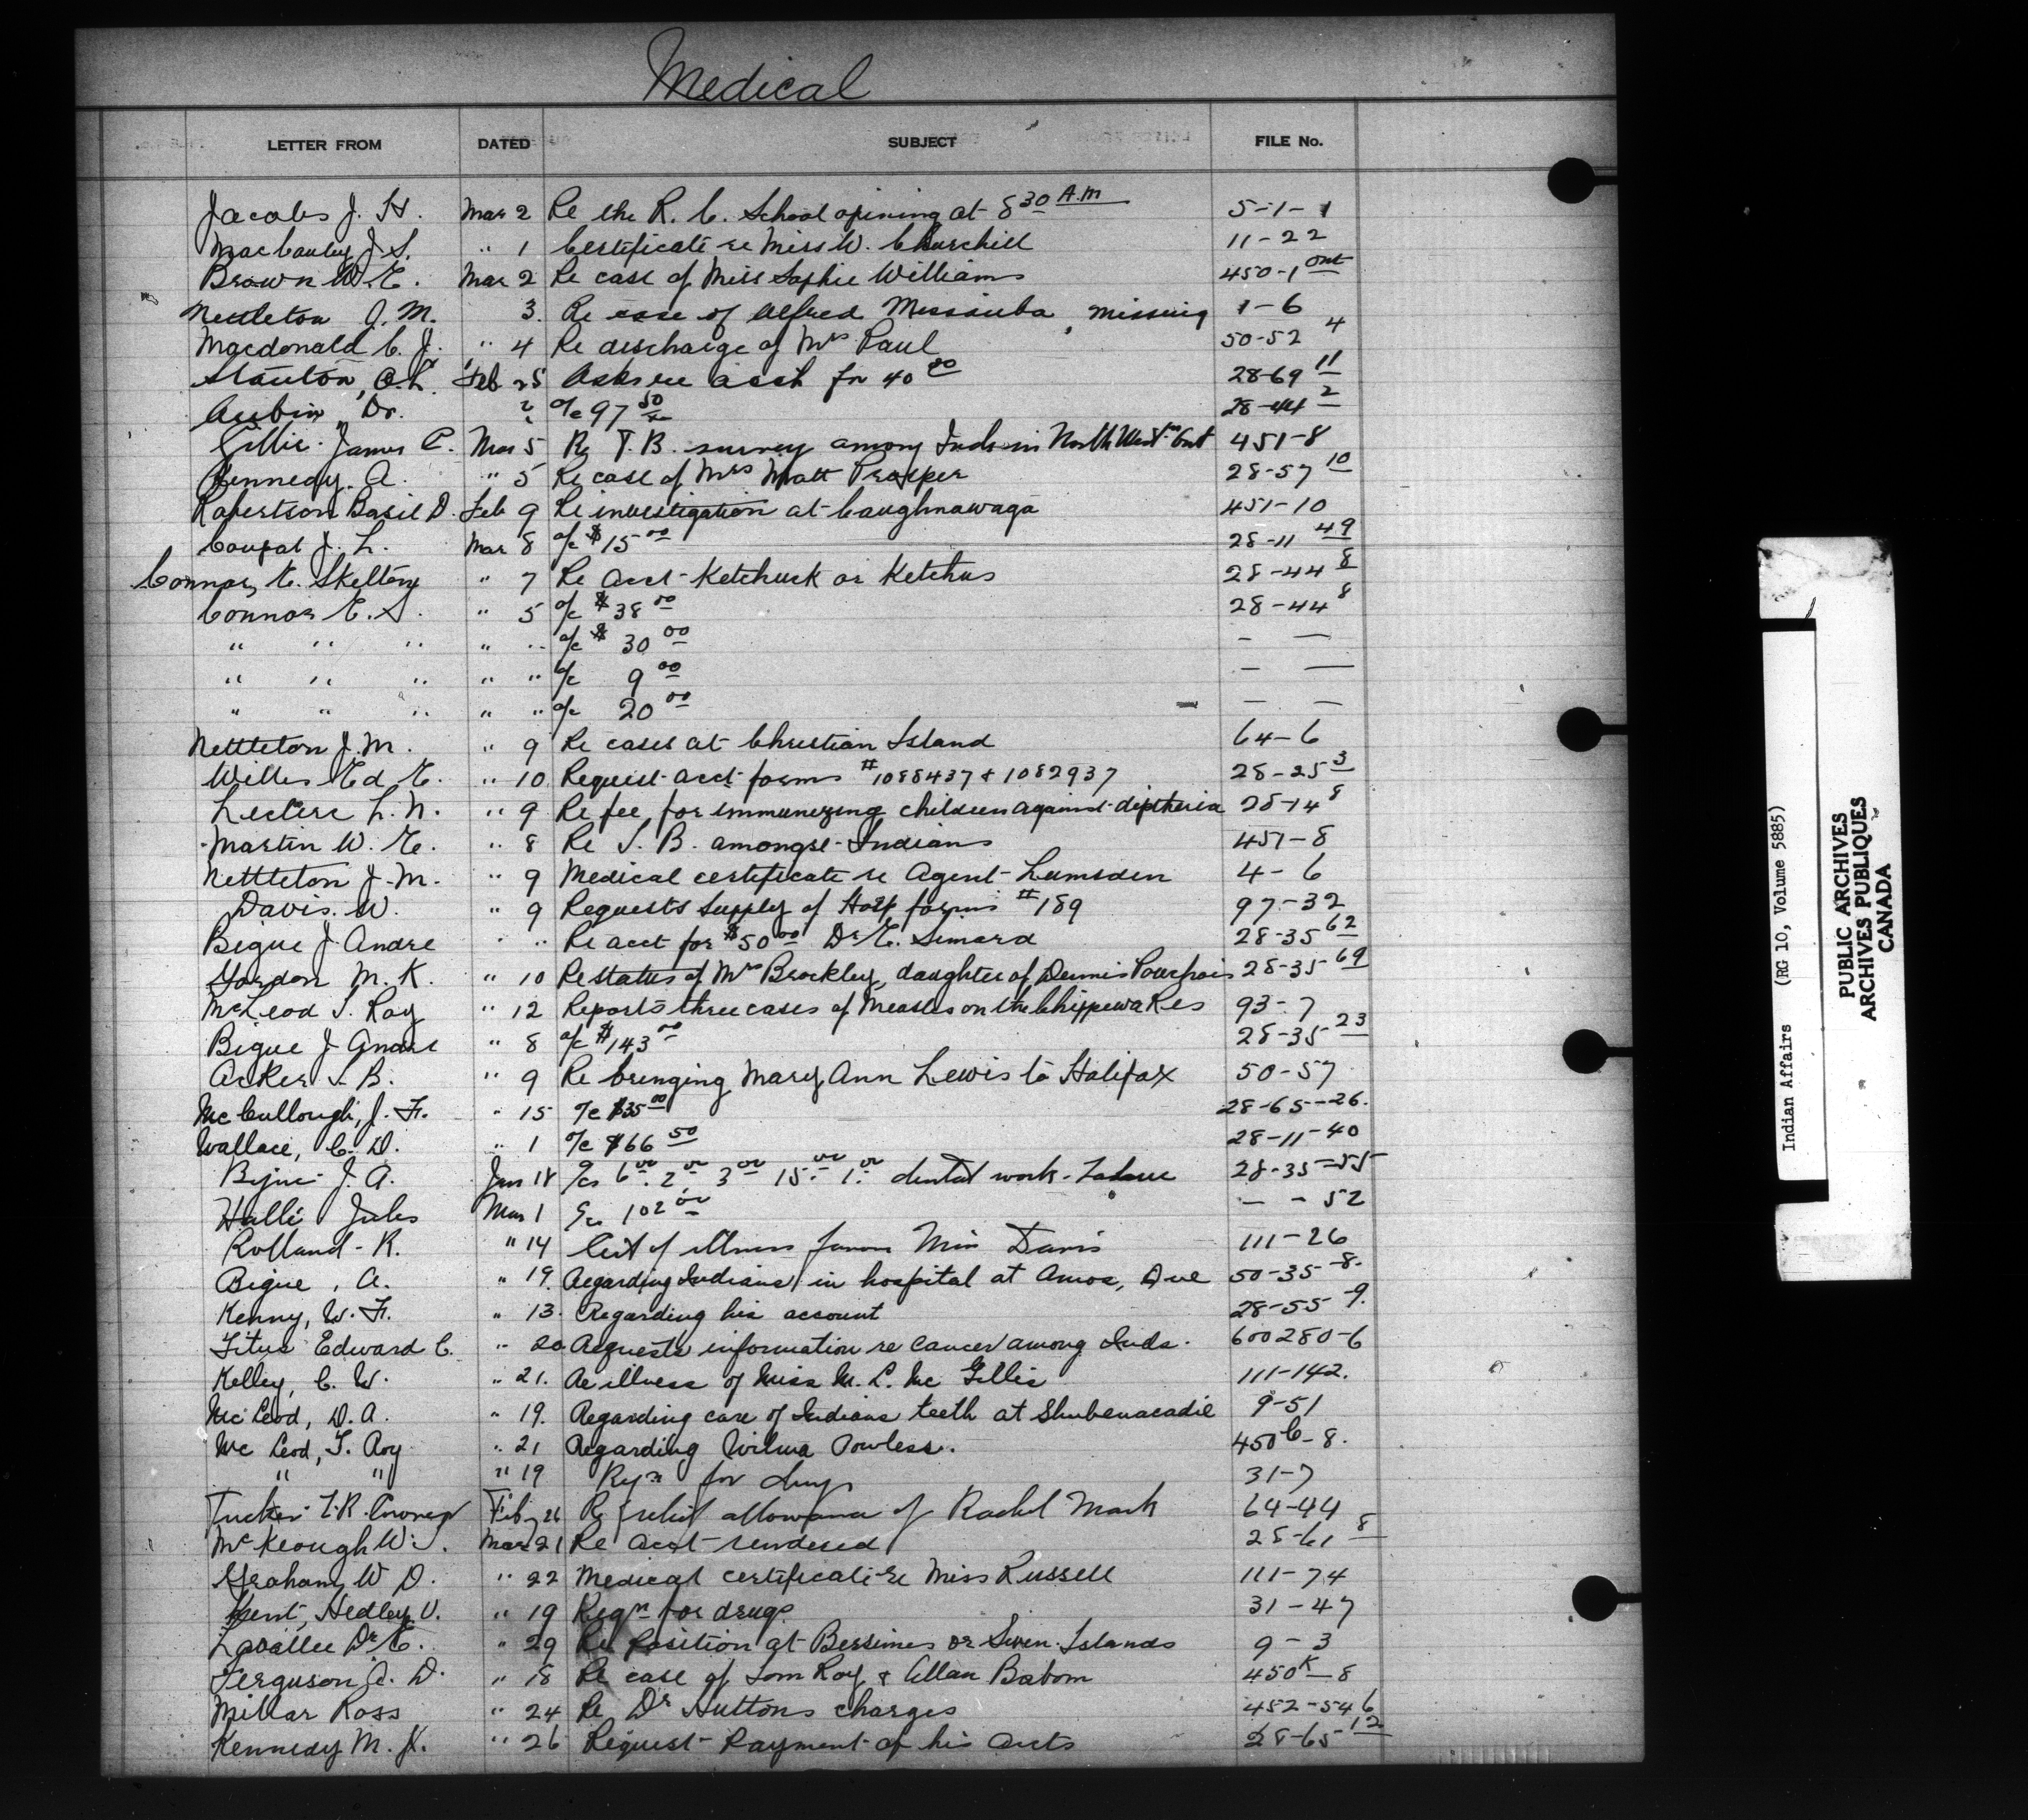 Medical
LETTER FROM DATED SUBJECT FILE No.
Jacobs J. H. Mar 2 Re the R. C. School opening at 8 30 A.M 5-1-1
MacCauley J. S. " 1 Certificate re Miss W. Churchill 11-22
Brown W. E. Mar 2 Re case of Miss Sophie Williams 450-1 Ont
Nettleton J. M. 3. Re case of Alfred missing 1-6
Macdonald C. J. " 4 Re discharge of Mrs Paul 50-52 4
Stanton, O.L. Feb 25 Asks re acct for 40 00 28-69 11
Aubin, Dr. " a/c 97 50 28-44 2
Gillie James P. Mar 5 Re T.B. survey among Inds in North Westrn Ont 451-8
Kennedy. A. " 5 Re case of Mrs Matt Prosper 28-57 10
Robertson Basil D. Feb 9 Re investigation at Caughnawaga 451-10
Coupal J. L. Mar 8 a/c $15 00 28-11 49
Connor, E. Skelton " 7 Re acct Ketchuck or Ketchus 28-44 8
Connor E. S. " 5 a/c $ 38 00 28-44 8
" " " " " a/c $ 30 00 — —
" " " " " a/c 9 00 — —
" " " " " a/c 20 00 — —
Nettleton J. M. " 9 Re cases at Christian Island 64-6
Willis Ed E. " 10 Request acct forms #1088437 & 1082937 28-25 3
Leclerc L. N. " 9 Re fee for immunizing children against diptheria 28-14 8
Martin W. E. " 8 Re T. B. amongst Indians 451-8
Nettleton J. M. " 9 Medical certificate re Agent Lumsden 4-6
Davis. W. " 9 Requests supply of Hosp forms #189 97-32
Bigue J. Andre " " Re acct for $50 00 Dr E. Simard 28-35 62
Gordon M. K. " 10 Re status of Mrs Brockley, daughter of Dennis 28-35 69
McLeod T. Roy " 12 Reports three cases of Measles on the Chippewa Res 93-7
Bigue J Andre " 8 a/c $143 00 28-35 23
Acker T. B. " 9 Re bringing Mary Ann Lewis to Halifax 50-57
McCullough, J. F. " 15 a/c $35 00 28-65-26.
Wallace, C. D. " 1 a/c $66 50 28-11-40
Bigue J. A. Jan 18 a/cs 6 00 2 00 3 00 15 00 1 00 dental work 28-35-55
Halle Jules Mar 1 a/c 102 00 — - 52
Rolland - R. " 14 Cert of illness Miss Davis 111-26
Bigue, A. " 19. Regarding Indians in hospital at Amos, Que 50-35-8.
Kenny, W. F. " 13. Regarding his account 28-55-9.
Titus Edward C. " 20 Requests information re cancer among Inds. 600280-6
Kelley, C. W. " 21. Re illness of Miss M. L. Mc Gillis 111-142.
Mc Leod, D. A. " 19. Regarding care of Indians teeth at Shubenacadie 9-51
Mc Leod, T. Roy " 21 Regarding Wilma Powless. 450 C-8.
" " " 19 Rqn for drugs 31-7
Tucker T. R. Feb 26 Re relief allowance of Rachel Mark 64-44
McKeough W. J. Mar 21 Re acct rendered 28-61 8
Graham W D. " 22 Medical certificate re Miss Russell 111-74
Kent, Hedley V. " 19 Reqn for drugs 31-47
Lavallee Dr E. " 29 Re position at Bersimes or Seven Islands 9-3
Ferguson A. D. " 18 Re case of Tom Roy & Allan Babom 450 K-8
Millar Ross " 24 Re Dr Huttons charges 452-546
Kennedy M. K. " 26 Request Payment of his accts 28-65-12
Indian Affairs (RG 10, Volume 5885)
PUBLIC ARCHIVES
ARCHIVES PUBLIQUES
CANADA